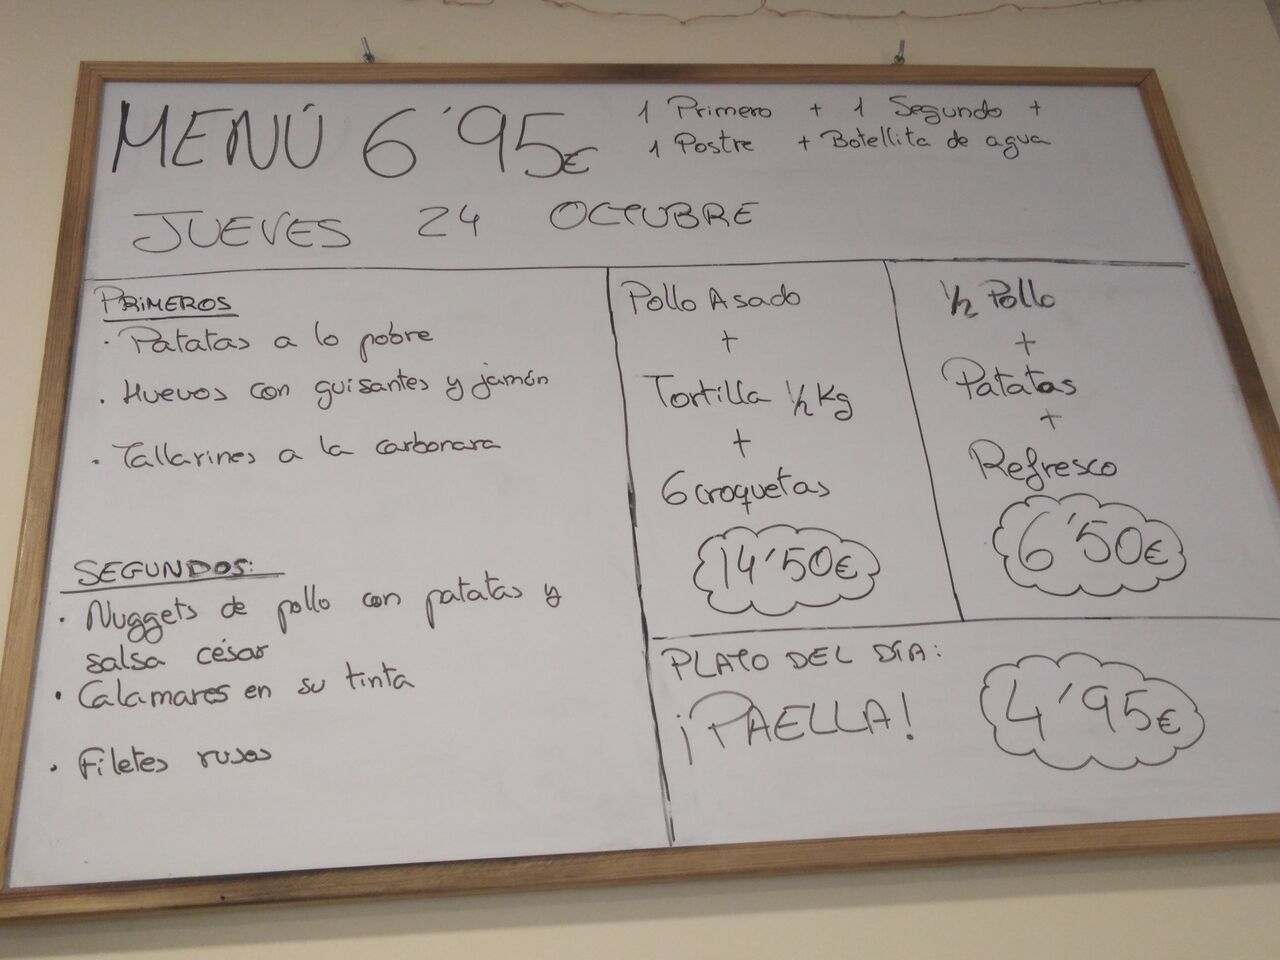 MENÚ 6'95€
1 Primero + 1 Segundo +
1 Postre + Botellita de agua
JUEVES 24 OCTUBRE
PRIMEROS
· Patatas a lo pobre
· Huevos con guisantes y jamón
· Tallarines a la carbonara
SEGUNDOS:
· Nuggets de pollo con patatas y
salsa césar
· Calamares en su tinta
· Filetes rusos
Pollo Asado
+
Tortilla 1/2 Kg
+
6 croquetas
14'50€
1/2 Pollo
+
Patatas
+
Refresco
6'50€
PLATO DEL DÍA:
¡PAELLA!
4'95€